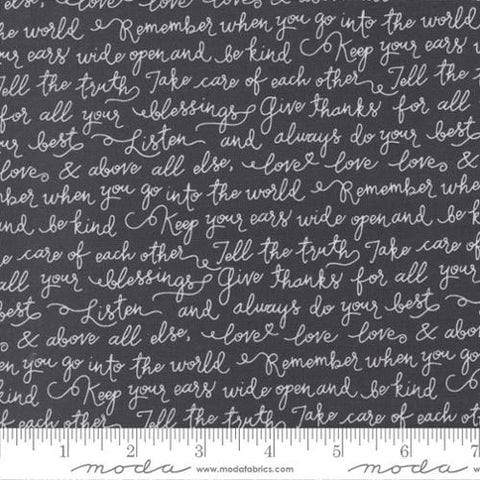 love love love & above all else,
the world Remember when you go into the world
Keep your ears wide open and be kind Keep your ears w
Tell the truth Take care of each other Tell the tr
for all your blessings Give thanks for all y
your best Listen and always do your best
love & above all else, love love love &
ember when you go into the world Remember when yo
and be kind Keep your ears wide open and be k
ke care of each other Tell the truth Take care of
all your blessings Give thanks for all your
best Listen and always do your best
& above all else, love love love & above
en you go into the world Remember when you go
kind Keep your ears wide open and be kind
of each other Tell the truth Take care of each oth
1 2 3 4 5 6 7
moda www.modafabrics.com moda